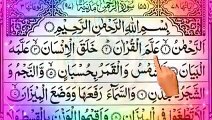 بِسْمِ اللّٰهِ الرَّحْمٰنِ الرَّحِيْمِ
اَلرَّحْمٰنُ عَلَّمَ الْقُرْاٰنَ خَلَقَ الْاِنْسَانَ عَلَّمَهُ
الْبَيَانَ اَلشَّمْسُ وَالْقَمَرُ بِحُسْبَانٍ وَّالنَّجْمُ وَ
الشَّجَرُ يَسْجُدٰنِ وَالسَّمَآءَ رَفَعَهَا وَوَضَعَ الْمِيْزَانَ